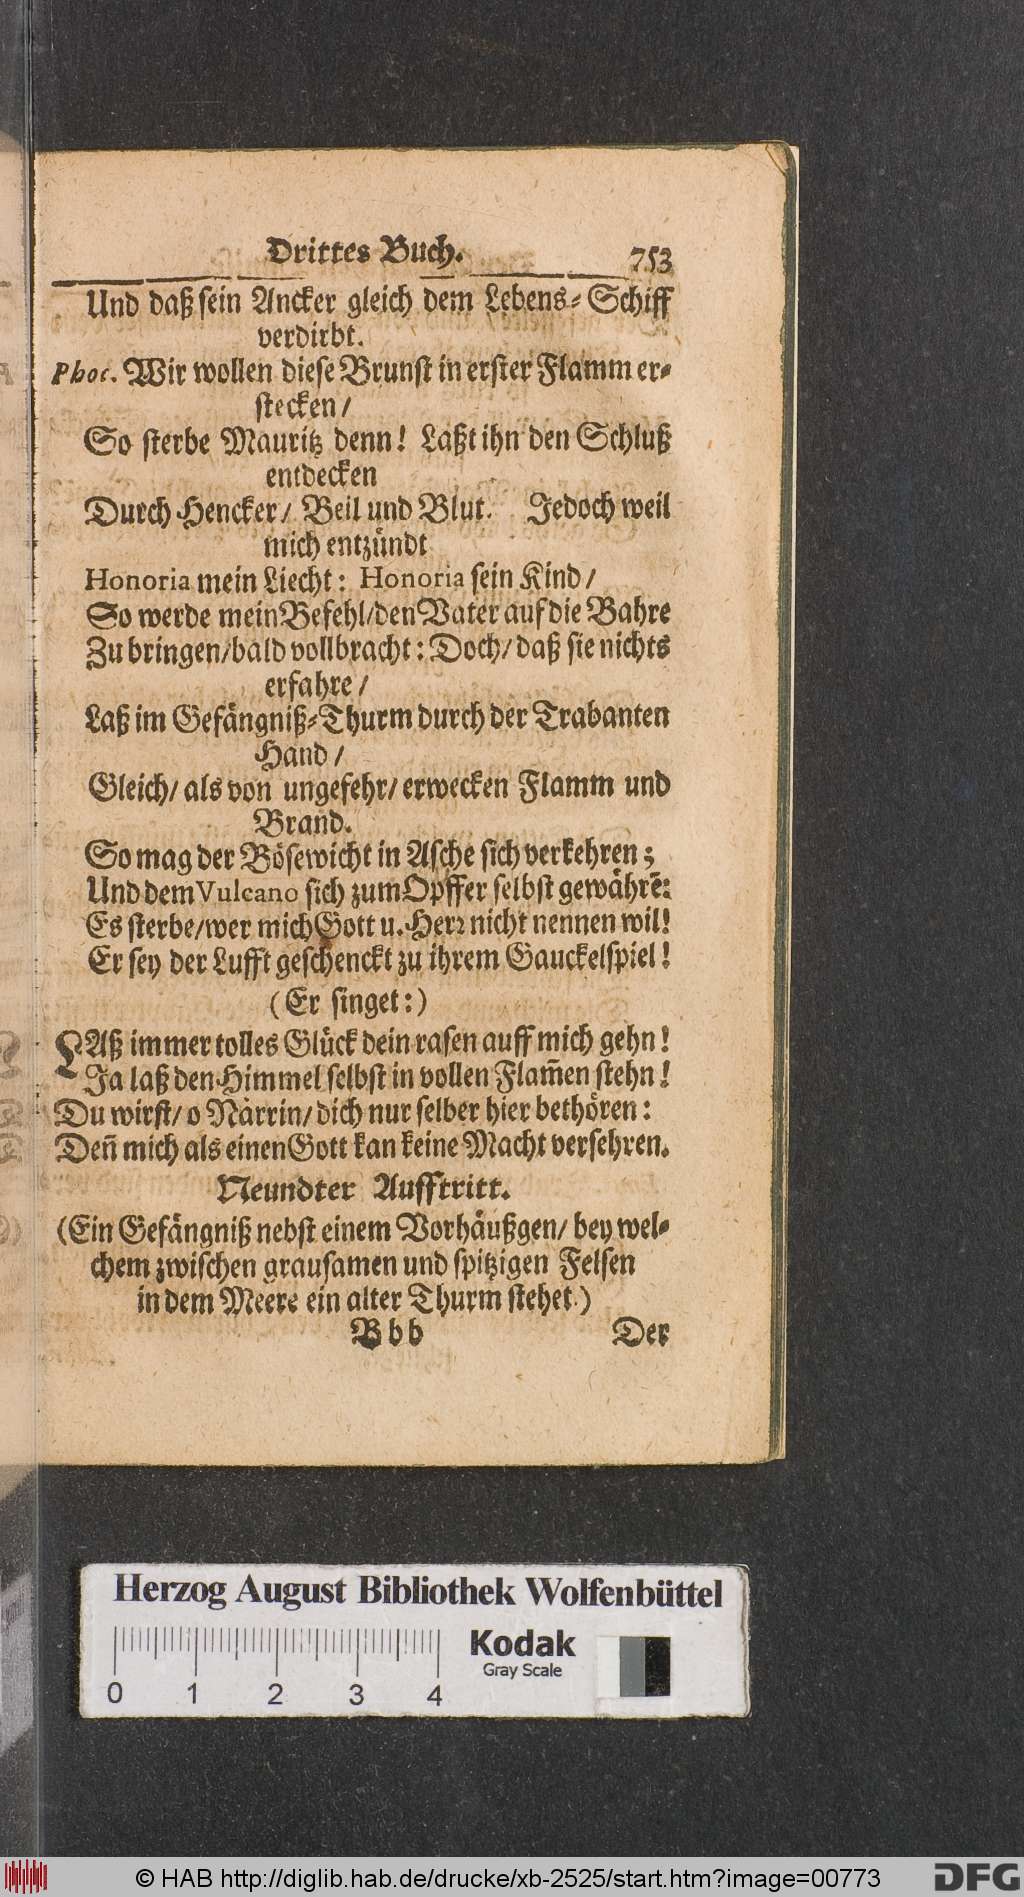 Drittes Buch. 753
Und daß sein Ancker gleich dem Lebens-Schiff
verdirbt.
Phoc. Wir wollen diese Brunst in erster Flamm er-
stecken/
So sterbe Mauritz denn! Laßt ihn den Schluß
entdecken
Durch Hencker/ Beil und Blut. Jedoch weil
mich entzündt
Honoria mein Liecht: Honoria sein Kind/
So werde mein Befehl/den Vater auf die Bahre
Zu bringen/bald vollbracht: Doch/ daß sie nichts
erfahre/
Laß im Gefängniß-Thurm durch der Trabanten
Hand/
Gleich/ als von ungefehr/ erwecken Flamm und
Brand.
So mag der Bösewicht in Asche sich verkehren;
Und dem Vulcano sich zum Opffer selbst gewährẽ:
Es sterbe/wer mich Gott u. Herꝛ nicht nennen wil!
Er sey der Lufft geschenckt zu ihrem Gauckelspiel!
(Er singet:)
LAß immer tolles Glück dein rasen auff mich gehn!
Ja laß den Himmel selbst in vollen Flam̃en stehn!
Du wirst/ o Närrin/ dich nur selber hier bethören:
Den̄ mich als einen Gott kan keine Macht versehren.
Neundter Aufftritt.
(Ein Gefängniß nebst einem Vorhäußgen/ bey wel-
chem zwischen grausamen und spitzigen Felsen
in dem Meere ein alter Thurm stehet.)
Bbb Der
Herzog August Bibliothek Wolfenbüttel
Kodak
Gray Scale
0 1 2 3 4
© HAB http://diglib.hab.de/drucke/xb-2525/start.htm?image=00773
DFG